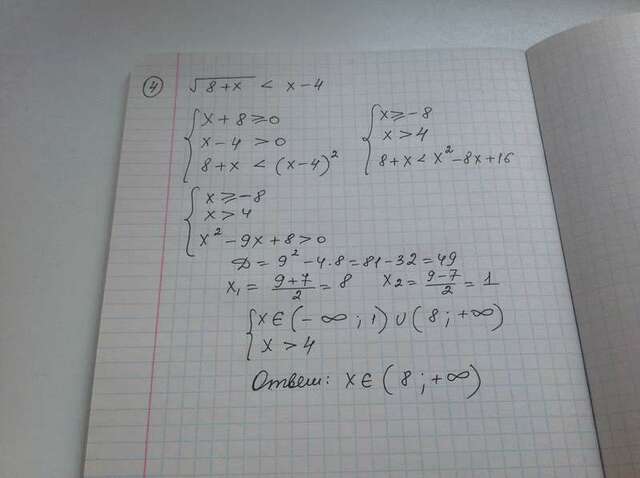 4 √8+x < x-4
x+8 ≥ 0
x-4 > 0
8+x < (x-4)²
x ≥ -8
x > 4
8+x < x²-8x+16
x ≥ -8
x > 4
x²-9x+8 > 0
D = 9²-4·8 = 81-32 = 49
x₁ = (9+7)/2 = 8 x₂ = (9-7)/2 = 1
x ∈ (-∞; 1) ∪ (8; +∞)
x > 4
Ответ: x ∈ (8; +∞)